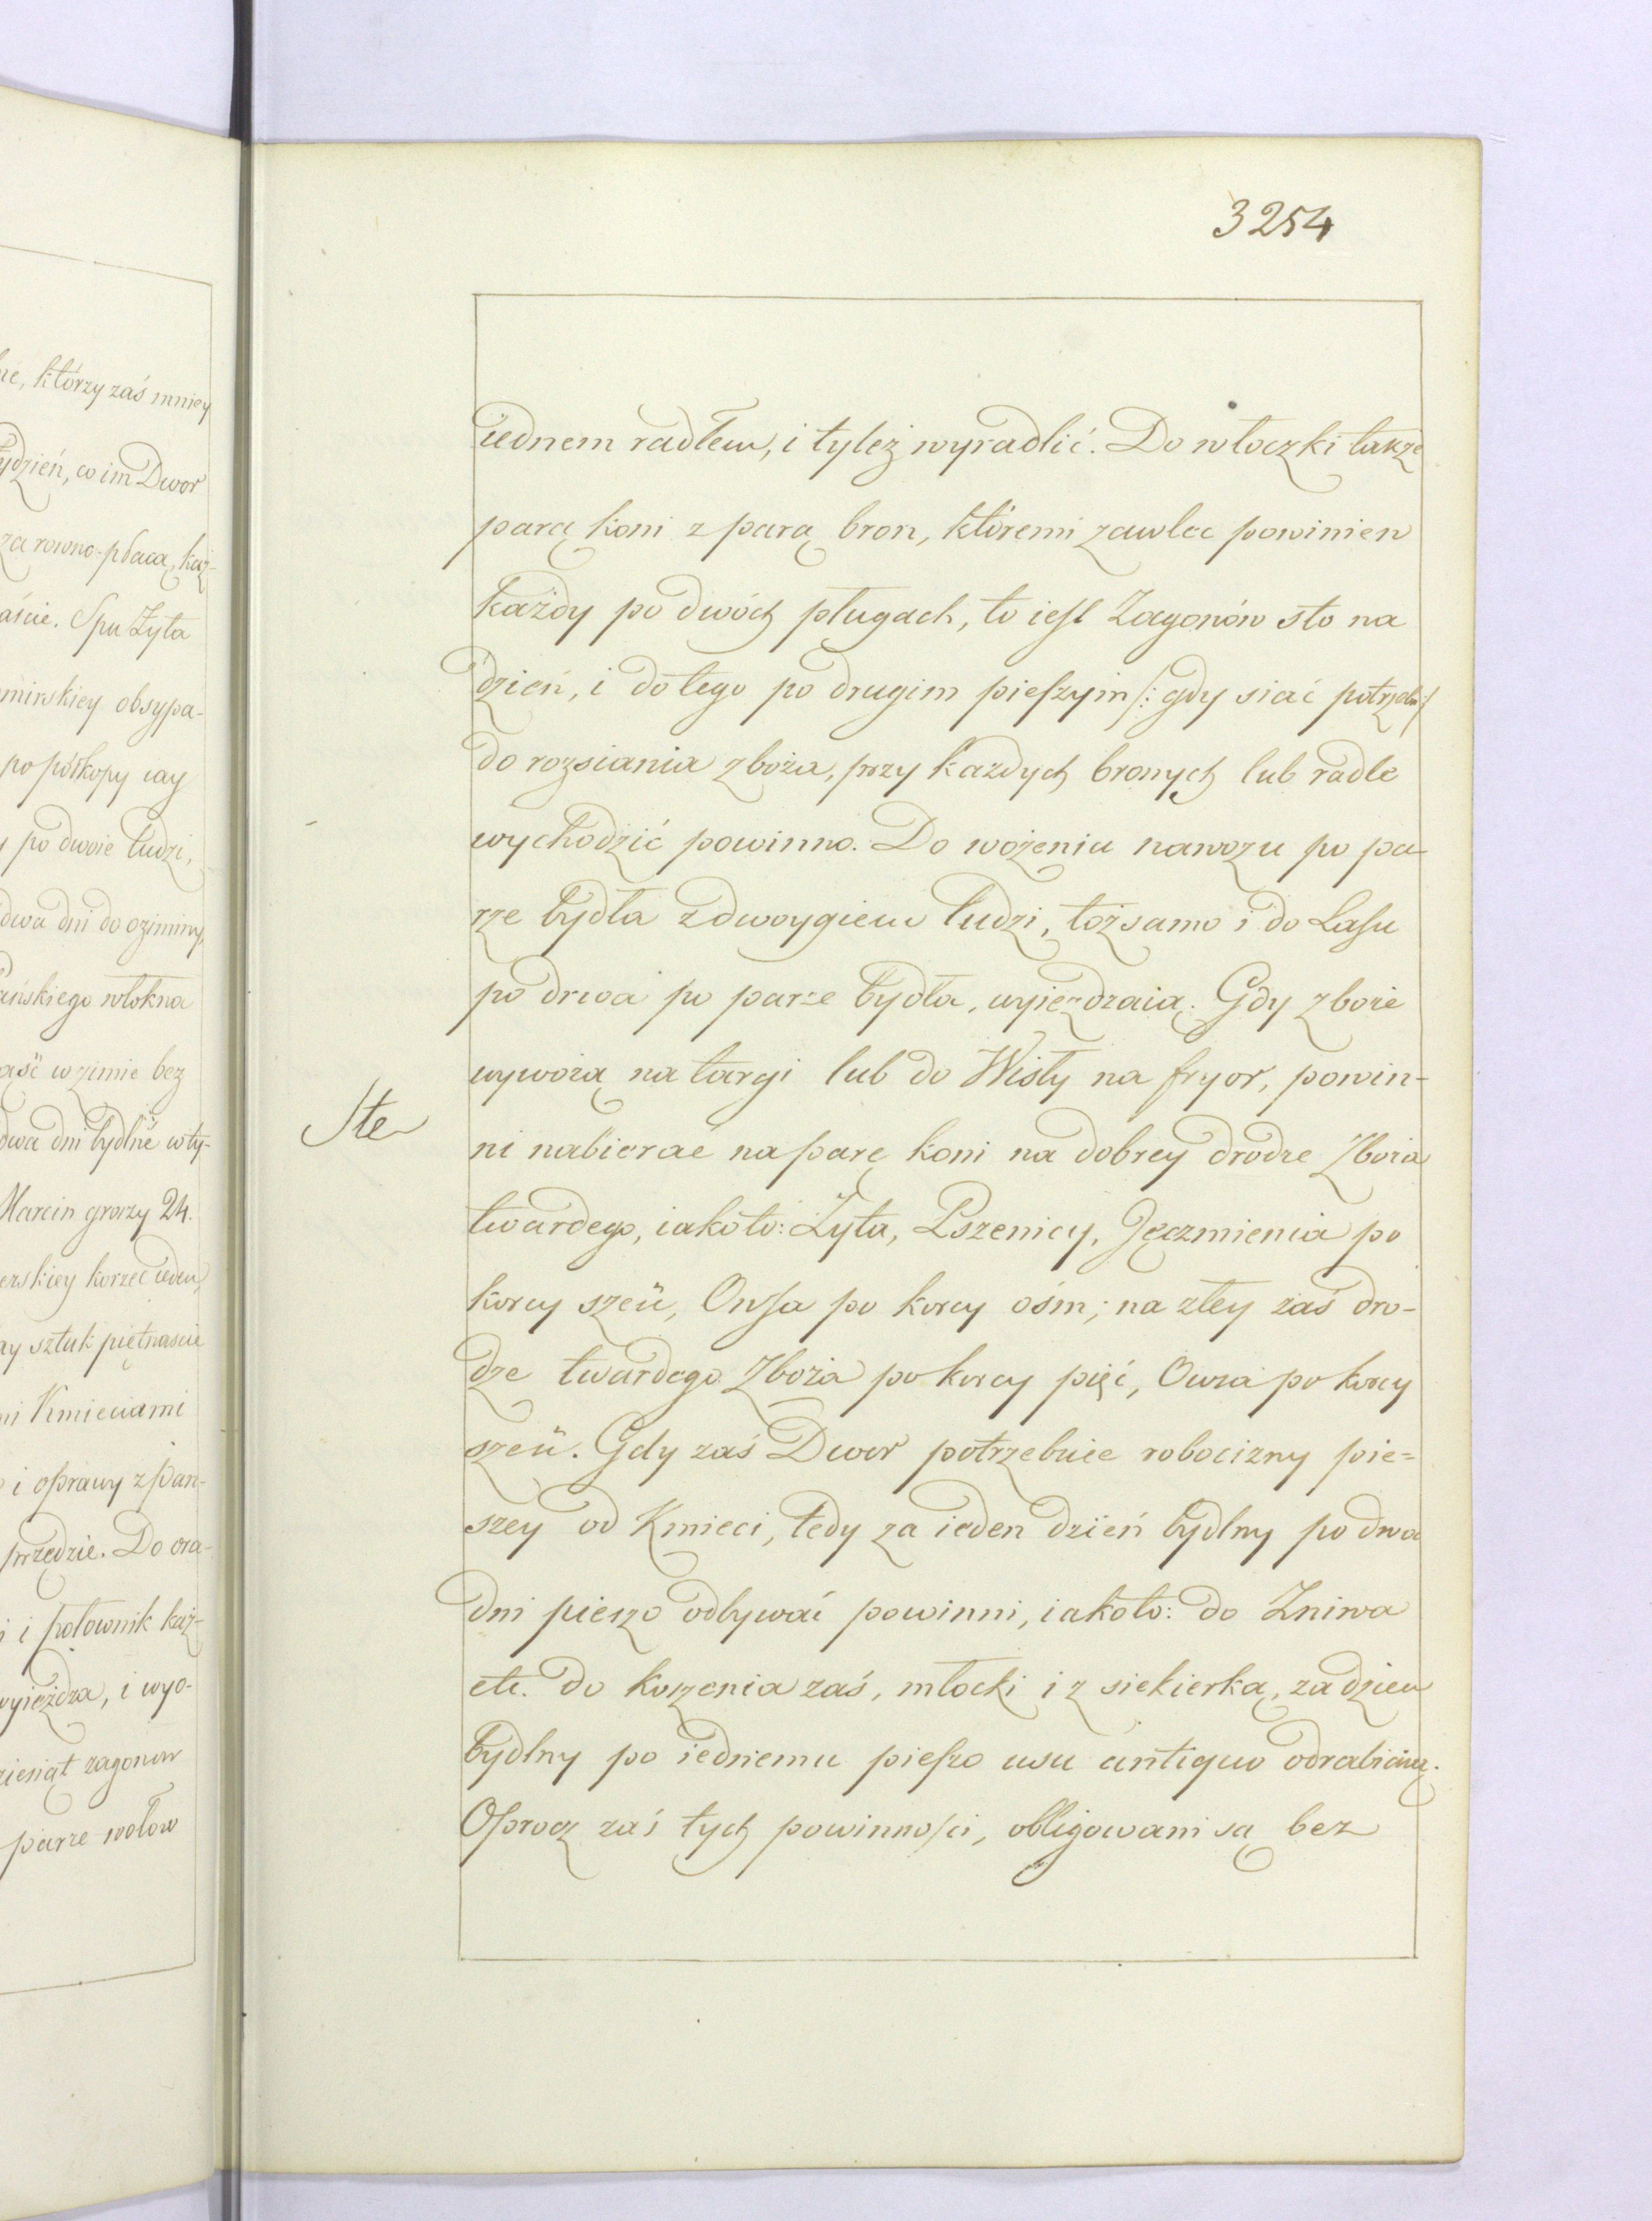 ne, którzy zaś mniey
tydzień, co im Dwor
za rowno-płaca, każ-
aście. Spu Żyta
mirskiey obsypa-
po półkopy iay
po dwoie ludzi,
dwa dni do oziminy,
ańskiego włokna
aść w zimie bez
dwa dni bydlne w ty-
Marcin groszy 24.
erskiey korzec ieden,
ay sztuk piętnascie
mi Kmieciami
i oprawy z Pan-
przędzie. Do ora-
i i połownik każ-
wyieżdza, i wyo-
ziesiąt zagonow
parze wołow
3254
iednem radłem, i tyleż wyradlić. Do włoczki także
parą koni z parą bron, któremi zawlec powinien
każdy po dwóch pługach, to iest Zagonów sto na
dzień, i do tego po drugim pieszym /: gdy siać potrzeba :/
do rozsiania zboża, przy każdych bronych lub radle
wychodzić powinno. Do wożeniu nawozu po pa-
rze bydła z dwoygiem ludzi, toż samo i do Lasu
po drwa po parze bydła, wyjezdzaią. Gdy zboże
wywożą na targi lub do Wisły na fryor, powin-
Ste
ni nabierać na parę koni na dobrey drodze Zboża
twardego, iakoto: Żyta, Pszenicy, Jęczmienia po
korcy sześć, Owsa po korcy ośm; na złey zaś dro-
dze twardego Zboża po korcy pięć, Owsa po korcy
sześć. Gdy zaś Dwor potrzebuie robocizny pie=
szey od Kmieci, tedy za ieden dzień bydlny po dwa
dni pieszo odbywać powinni, iakoto: do Żniwa
etc. do koszenia zaś, młocki i z siekierką, za dzien
bydlny po iednemu pieszo usu antiquo odrabiaią.
Oprocz zaś tych powinności, obligowani są bez